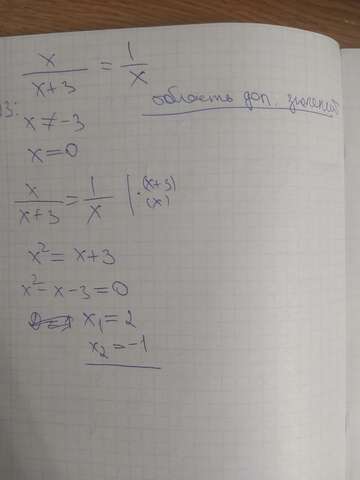 x/(x+3) = 1/x
область доп. значений
ОДЗ:
x ≠ -3
x = 0
x/(x+3) = 1/x | · (x+3) (x)
x² = x+3
x² - x - 3 = 0
x₁ = 2
x₂ = -1